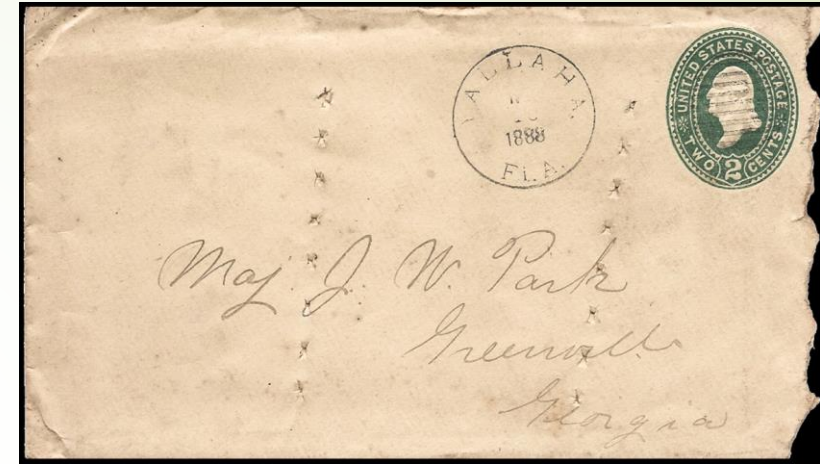 TALLAHA.
1888
FLA.
UNITED STATES POSTAGE
TWO 2 CENTS
Maj. J. W. Park
Greenville
Georgia